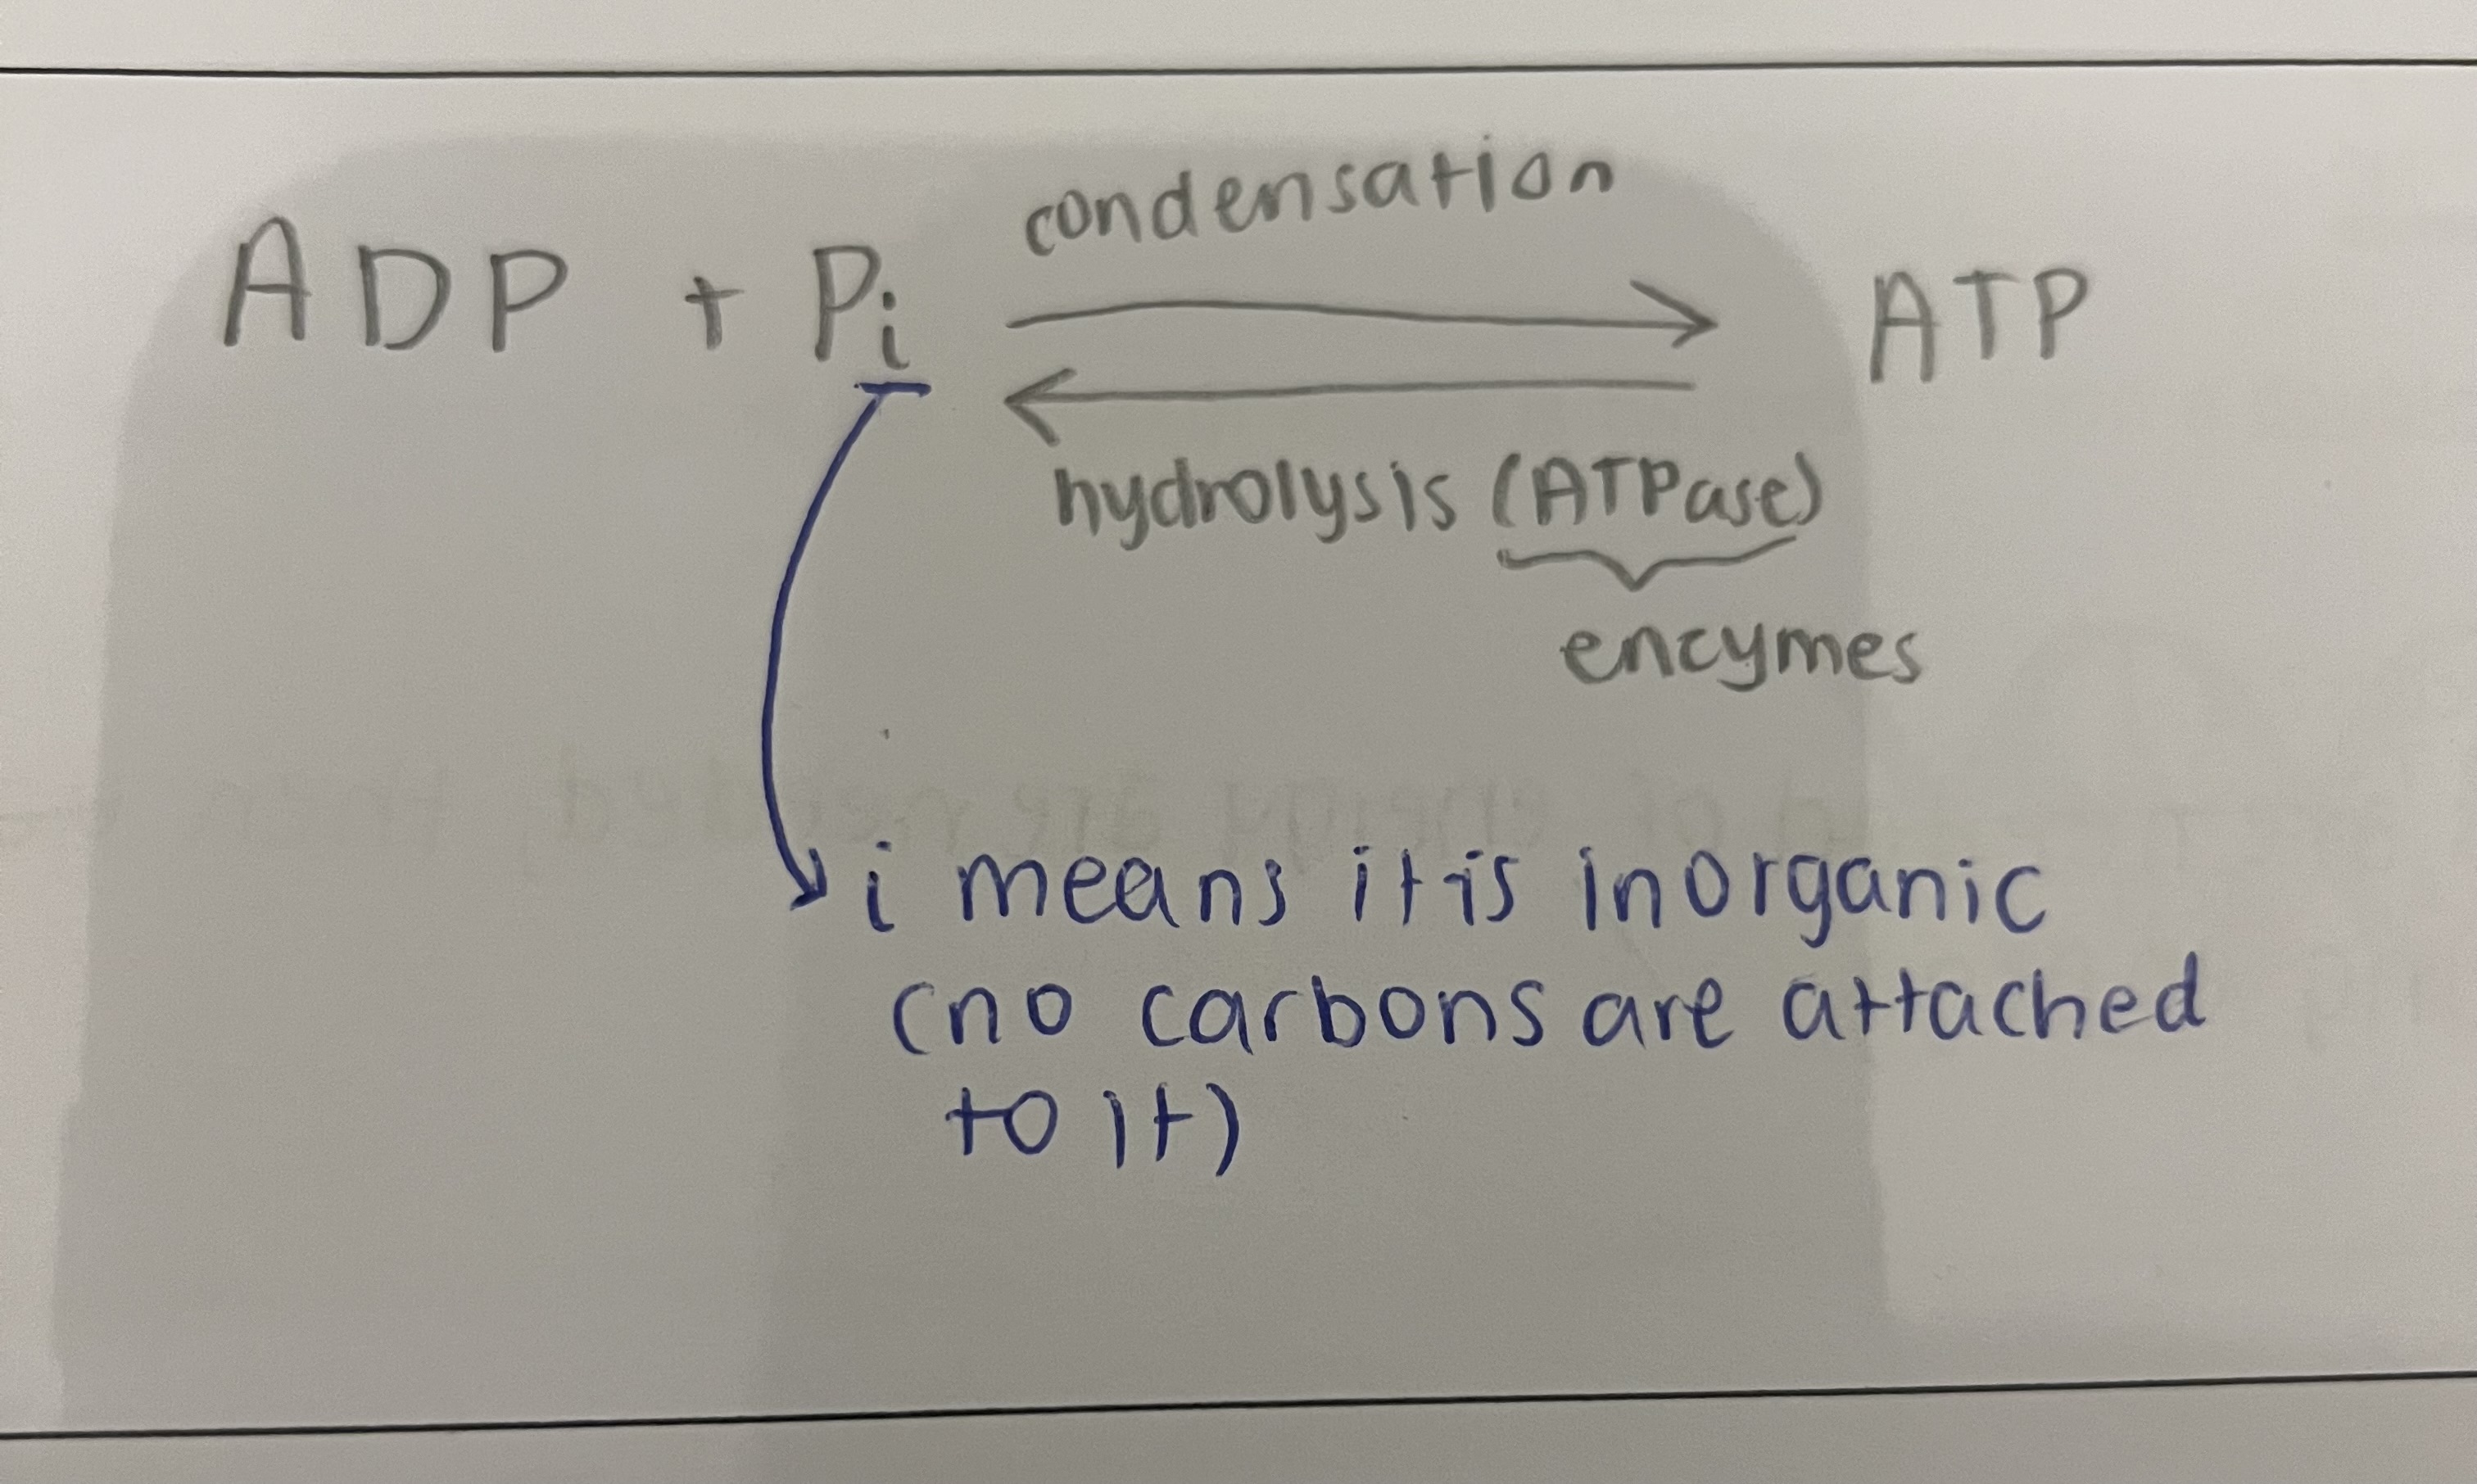 condensation
ADP + Pi ATP
hydrolysis (ATPase)
encymes
i means it is inorganic
(no carbons are attached
to it)